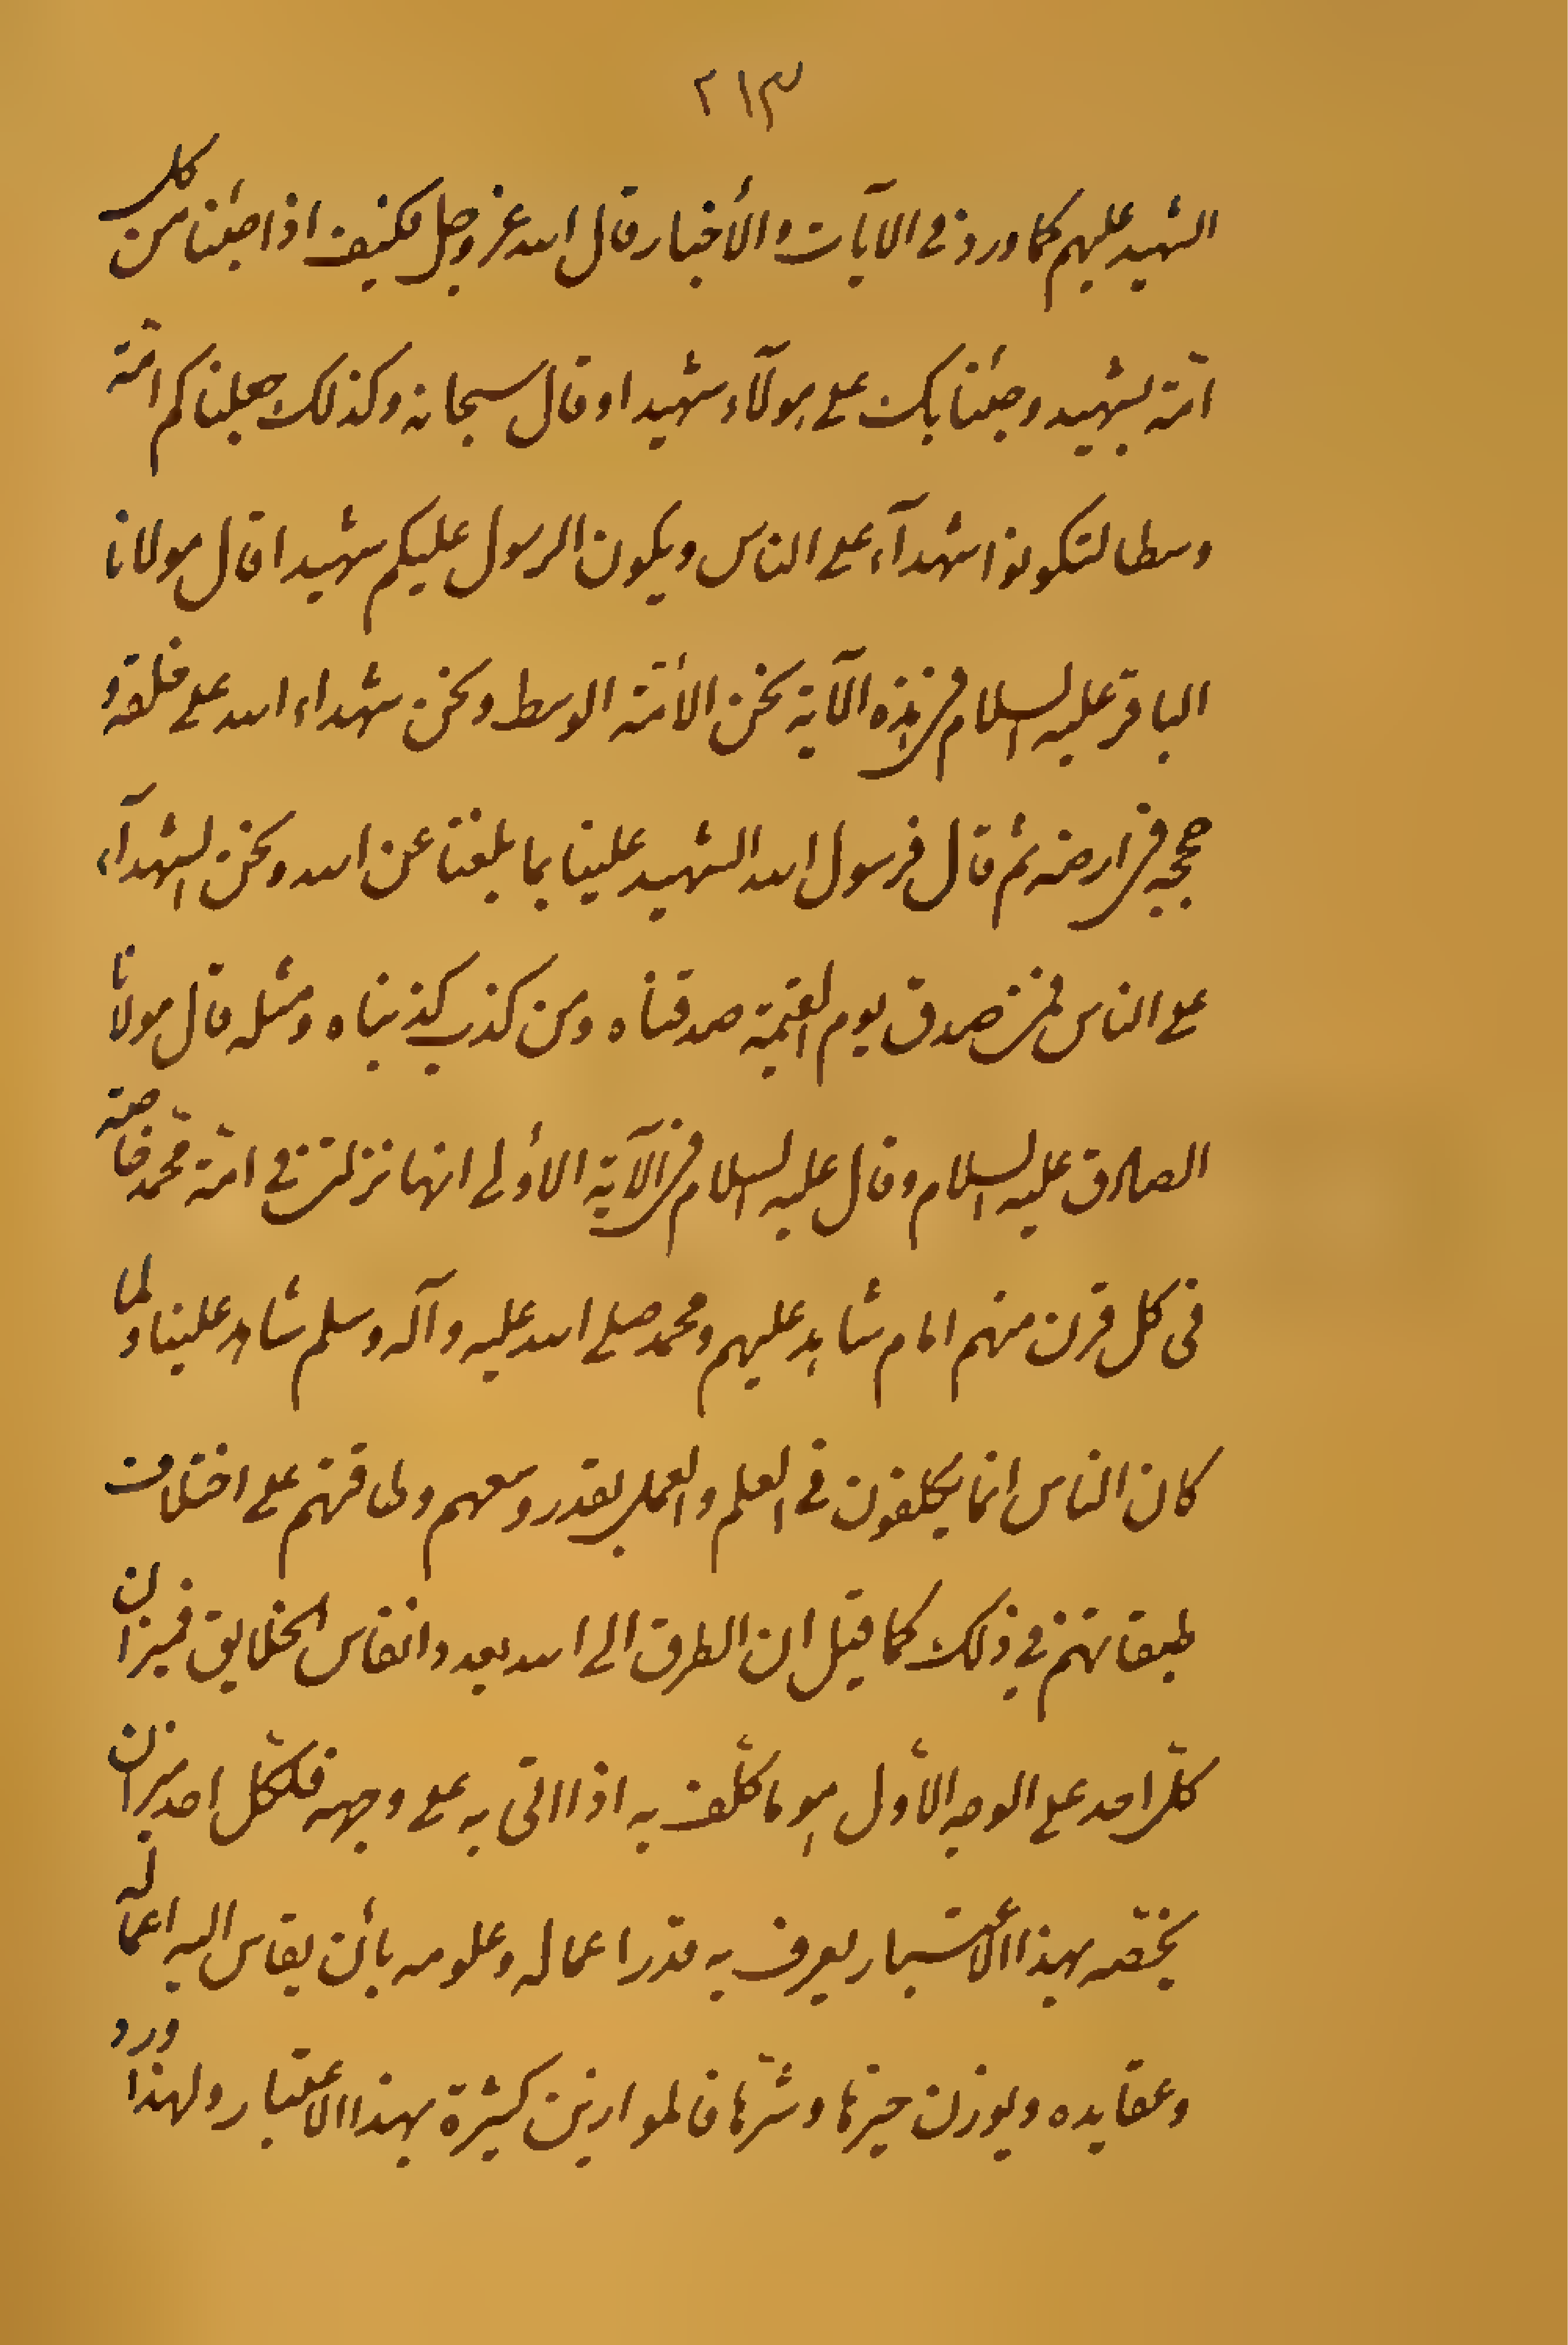 ٢١٣
الشهيد عليهم كما ورد في الآيات والأخبار قال الله عز وجل فكيف اذا جئنا من كل
امّة بشهيد وجئنا بك على هولآء شهيدا وقال سبحانه وكذلك جعلناكم امّة
وسطا لتكونوا شهدآء على الناس ويكون الرسول عليكم شهيدا قال مولانا
الباقر عليه السلام في هذه الآية نحن الأمّة الوسط ونحن شهداء الله على خلقه و
حججه في ارضه ثم قال فرسول الله الشهيد علينا بما بلغنا عن الله ونحن الشهدآء
على الناس فمن صدق يوم القيمة صدقناه ومن كذب كذبناه ومثله قال مولانا
الصادق عليه السلام وقال عليه السلام في الآية الأولى انها نزلت في امّة محمّد خاصة
في كل قرن منهم امام شاهد عليهم ومحمد صلى الله عليه وآله وسلم شاهد علينا ولما
كان الناس انما يكلفون في العلم والعمل بقدر وسعهم وطاقتهم على اختلاف
طبقاتهم في ذلك كما قيل ان الطرق الى الله بعدد انفاس الخلايق فميزان
كلّ احد على الوجه الأوّل هو ما كلّف به اذا اتى به على وجهه فلكلّ احد ميزان
يخصّه بهذا الاعتبار يعرف به قدر اعماله وعلومه بأن يقاس اليه اعماله
وعقايده ويوزن خيرها وشرّها فالموازين كثيرة بهذا الاعتبار ولهذا ورد